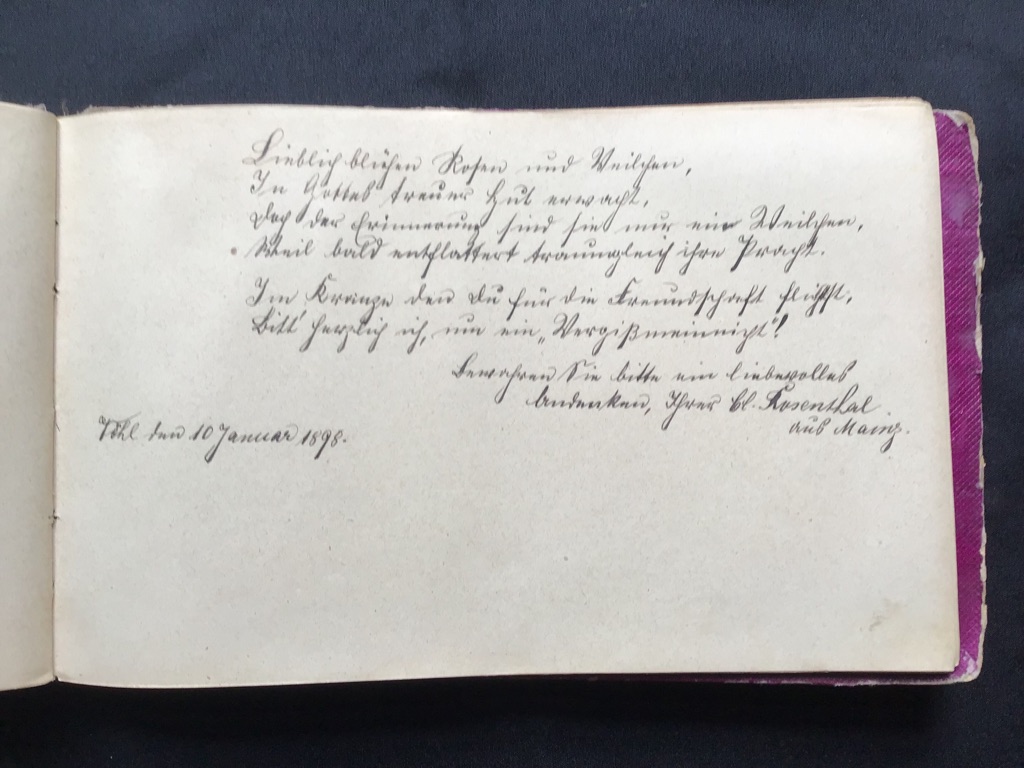 Lieblich blühen Rosen und Veilchen,
In Gottes treuer Hut erwacht,
Doch der Erinnerung sind sie nur ein Weilchen,
Weil bald entflattert traumgleich ihre Pracht.
Im Kranze den Du für die Freundschaft flichst,
Bitt' herzlich ich, um ein „Vergißmeinnicht"!
Bewahren Sie bitte ein liebevolles
Andenken, Ihrer Cl. Rosenthal
aus Mainz.
Vöhl den 10 Januar 1898.